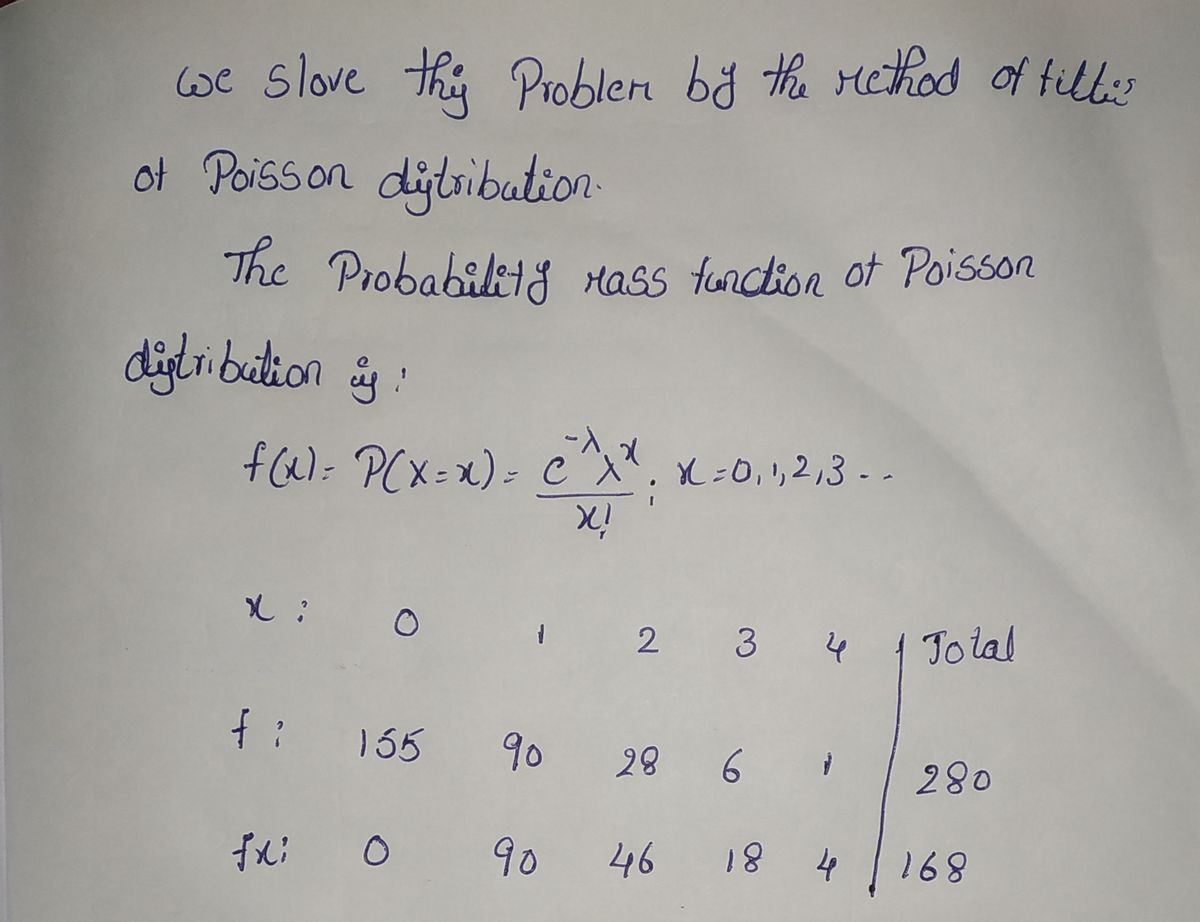 we slove this Problem by the method of fitting
of Poisson distribution.
The Probability mass function of Poisson
distribution is:
f(x) = P(X=x) = e^-λ λ^x / x! ; x=0,1,2,3 - -
x : 0 1 2 3 4 Total
f : 155 90 28 6 1 280
fx: 0 90 46 18 4 168